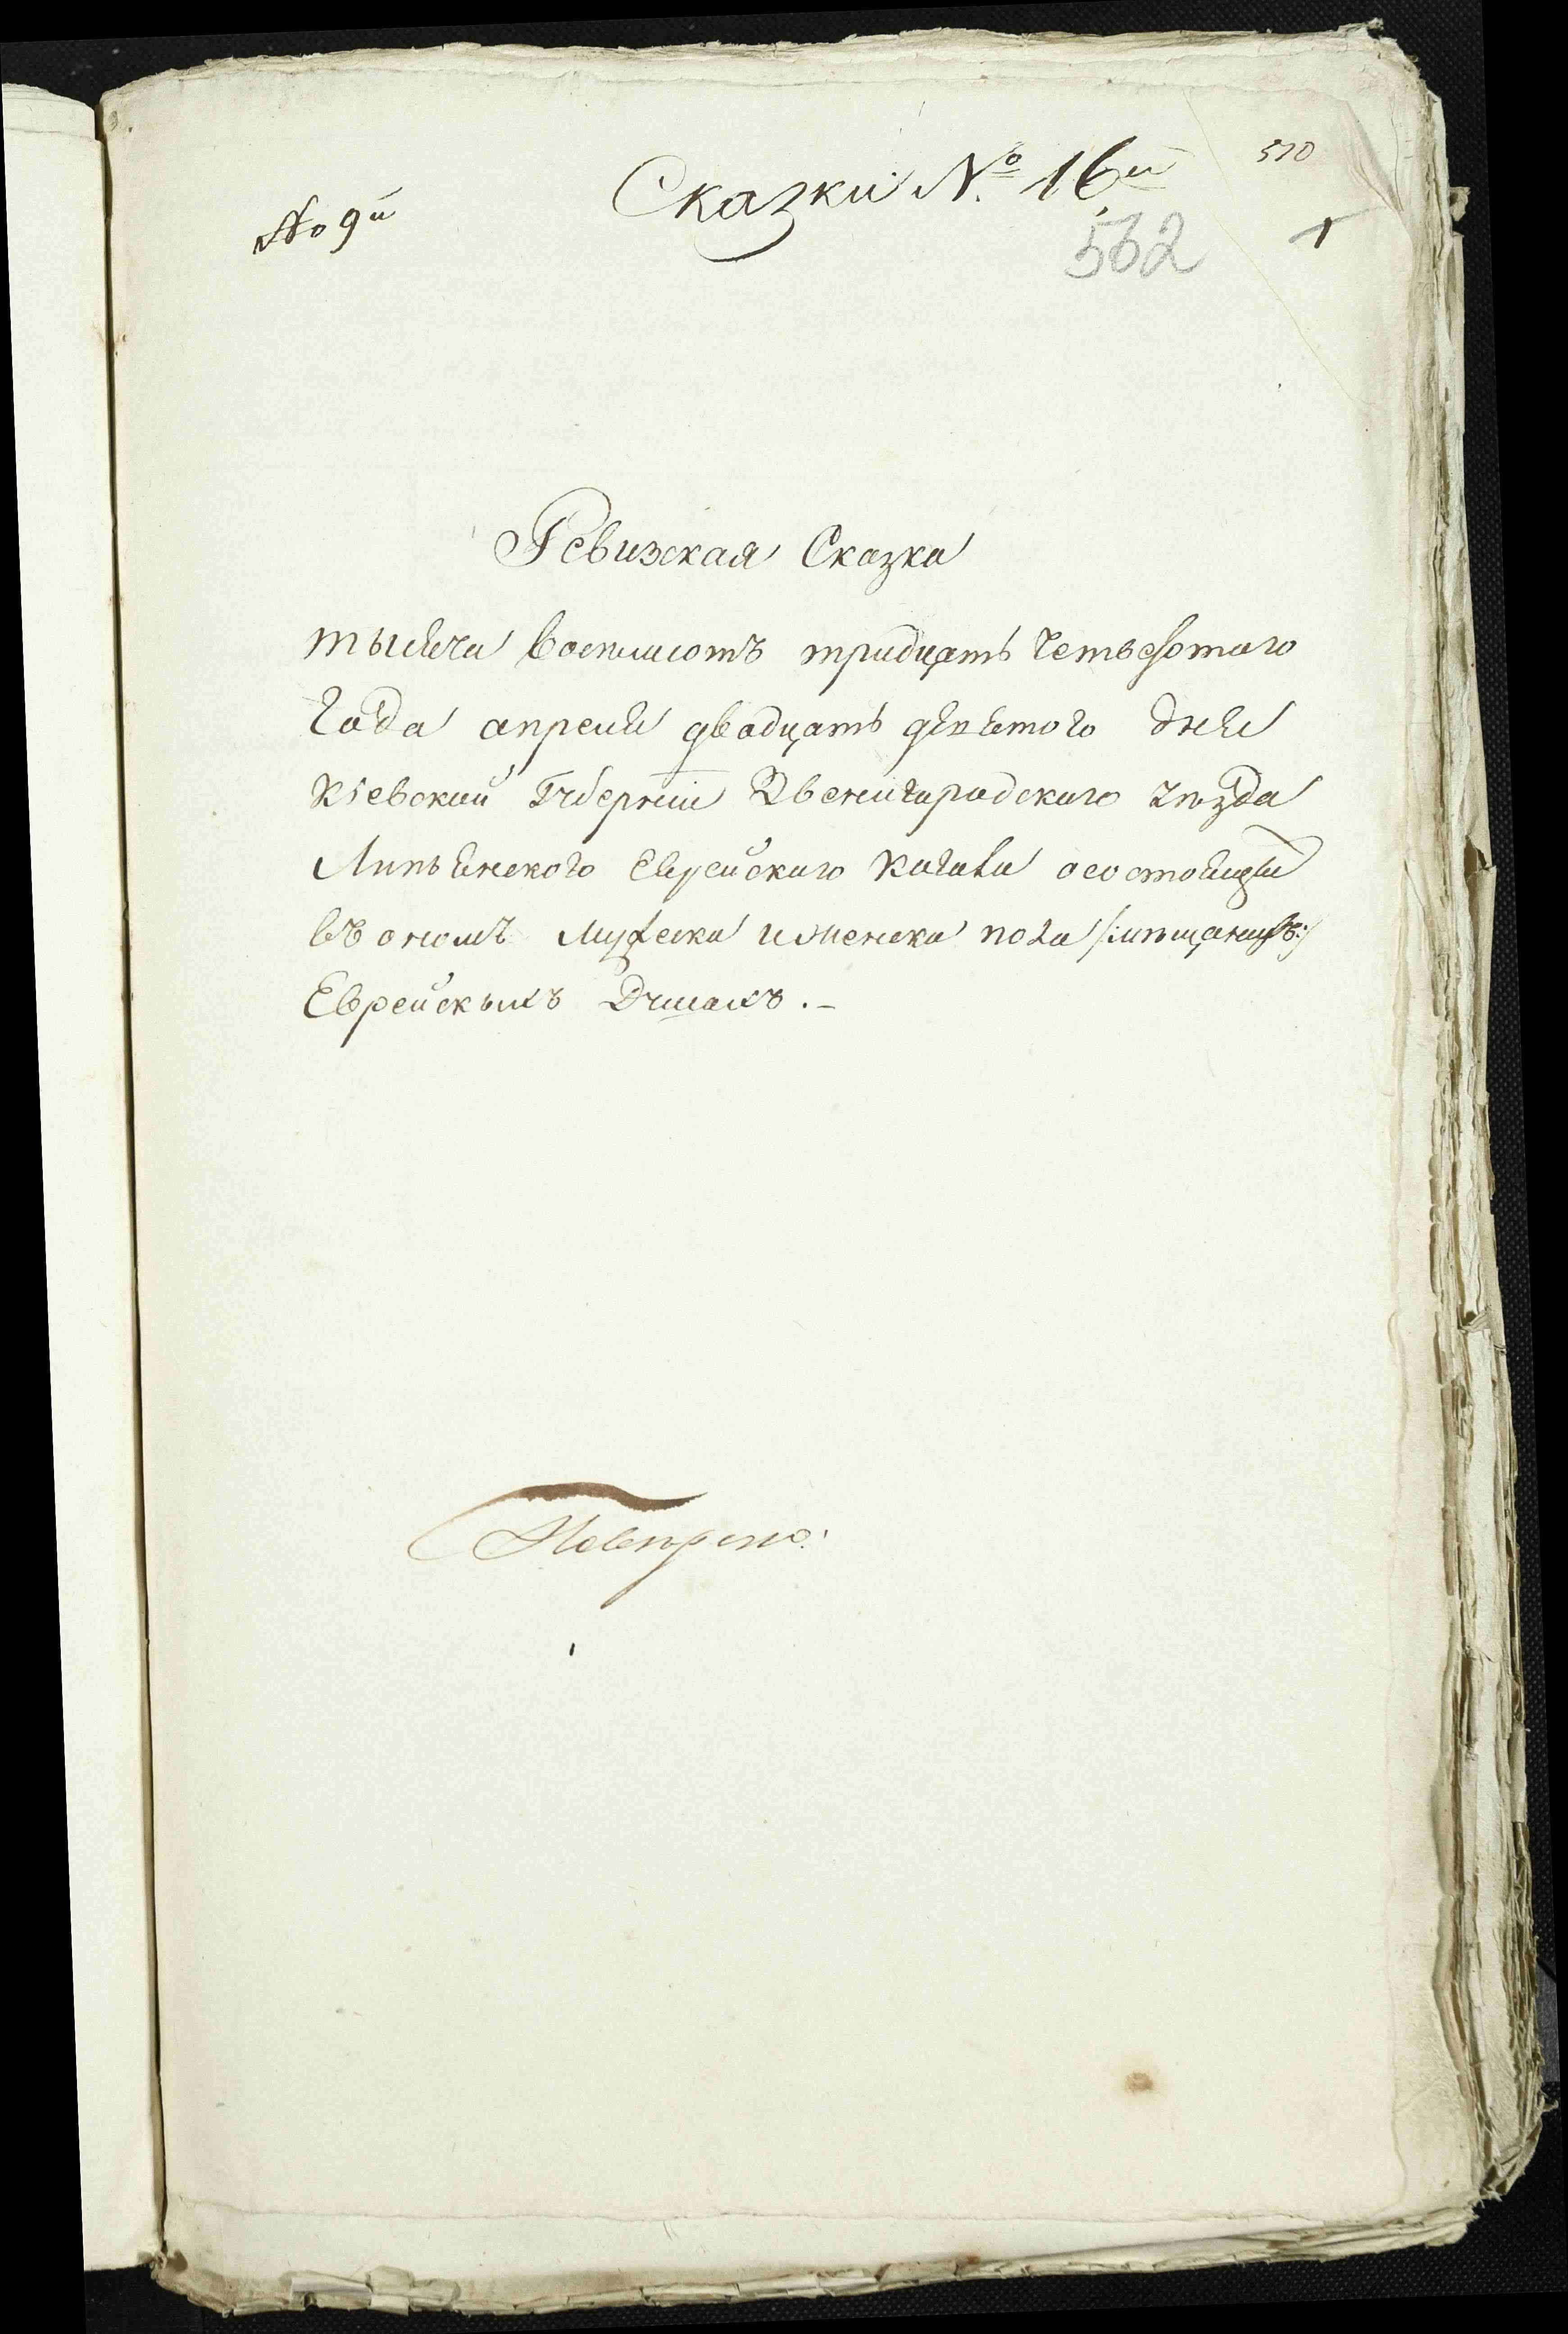 570
Сказки № 16й
№ 9й
1
562
Ревизская Сказка
тысяча восемсотъ тридцать четвертаго
года апреля двадцать девятого дня
Кіевской Губерніи Звенигородскаго уѣзда
Липянского Еврейскаго Кагала о состоящих
въ ономъ мужеска и женска пола /:мѣщанахъ:/
Еврейскихъ Душахъ.-
Повѣрено: